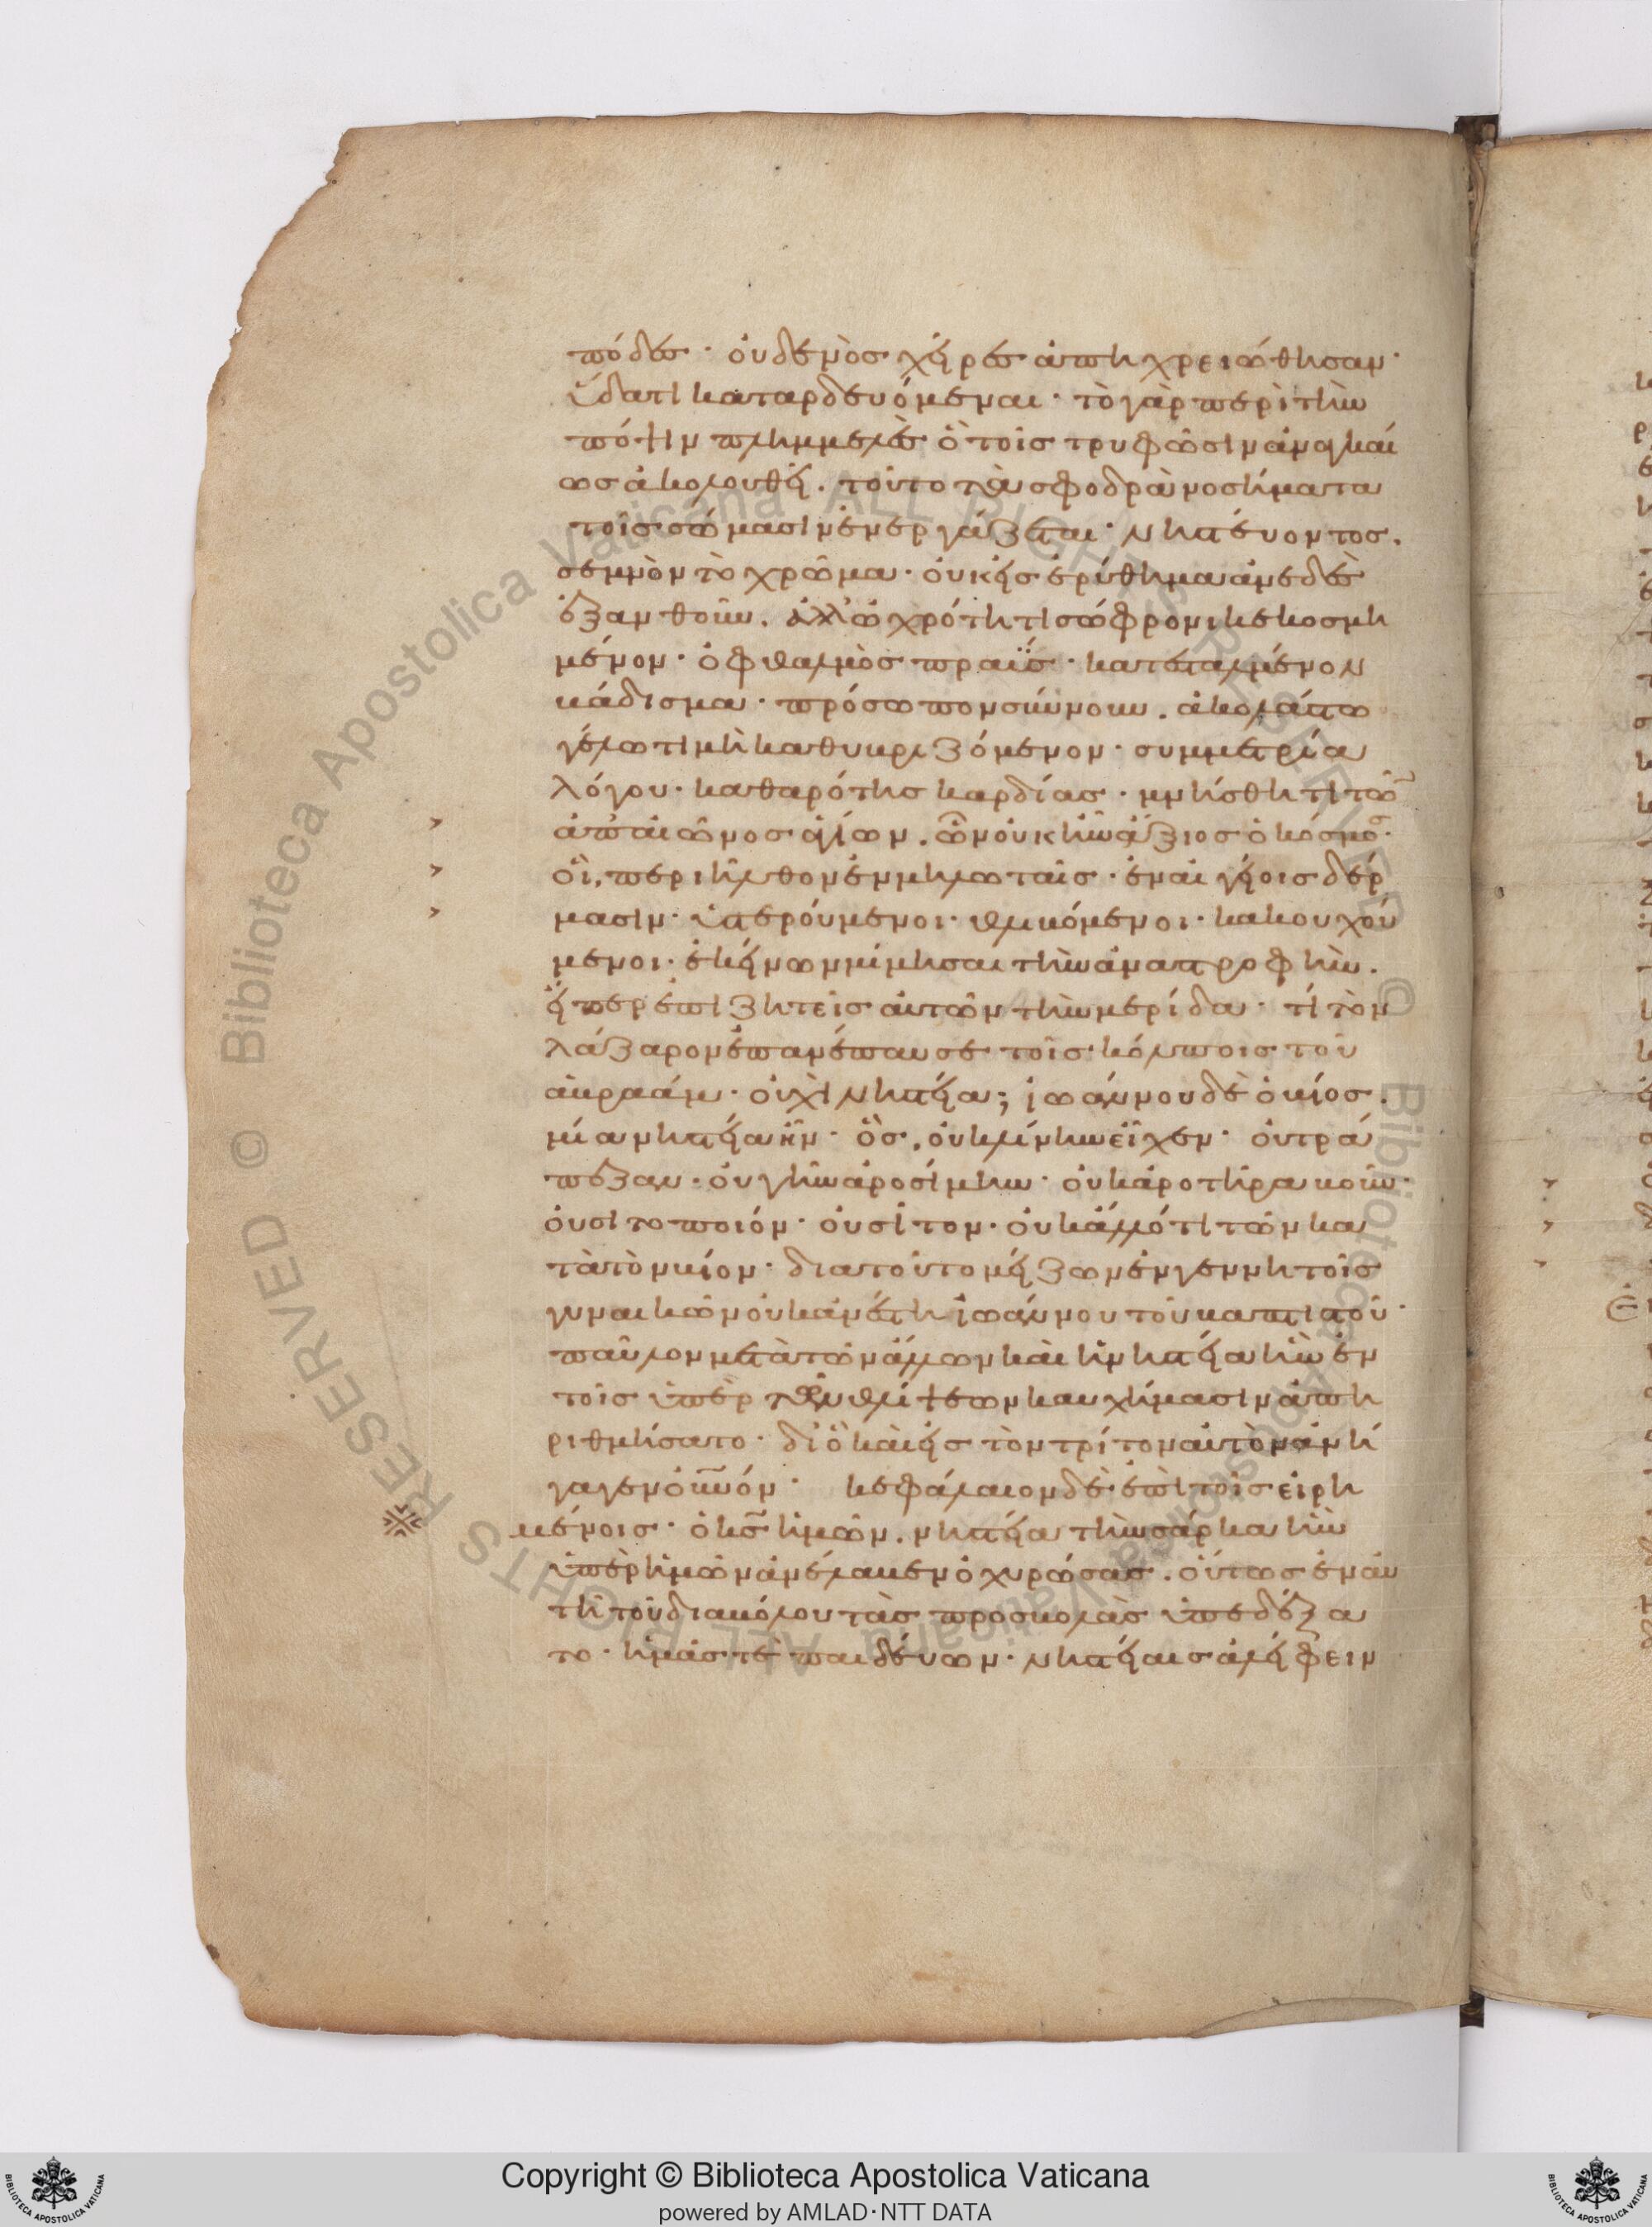 πόδες· οὐδενὸς χεῖρες ἀπηχρειώθησαν·
ὕδατι καταρδευόμεναι· τὸ γὰρ περὶ τὴν
πόσιν πλημμελὲς ὃ τοῖς τρυφῶσιν ἀναγκαί
ως ἀκολουθεῖ. τοῦτο τὰ σφοδρὰ νοσήματα
τοῖς σώμασιν ἐνεργάζεται· νηστεύοντος.
σεμνὸν τὸ χρῶμα· οὐκ εἰς ἐρύθημα ἀνεδὲς
ἐξανθοῦν. ἀλλ' ὠχρότητι σώφρονι κεκοσμη
μένον· ὀφθαλμὸς πραΰς· κατεσταλμένον
βάδισμα· πρόσωπον σύννουν. ἀκολάστω
γέλωτι μὴ καθυβριζόμενον· συμμετρία
λόγου· καθαρότης καρδίας· μνήσθητι τῶν
ἀπ' αἰῶνος ἁγίων. ὧν οὐκ ἦν ἄξιος ὁ κόσμος·
οἳ, περιῆλθον ἐν μηλωταῖς· ἐν αἰγείοις δέρ
μασιν· ὑστερούμενοι· θλιβόμενοι· κακουχού
μενοι· ἐκείνων μίμησαι τὴν ἀναστροφὴν.
εἴπερ ἐπιζητεῖς αὐτῶν τὴν μερίδα· τί τὸν
λάζαρον ἐπανέπαυσε τοῖς κόλποις τοῦ
ἀβραάμ· οὐχὶ νηστεία; ἰωάννου δὲ ὁ βίος.
μία νηστεία ἦν· ὃς, οὐ κλίνην εἶχεν· οὐ τρά
πεζαν· οὐ γῆν ἀροσίμην· οὐκ ἀροτῆρα βοῦν·
οὐ σιτοποιόν· οὐ σῖτον· οὐκ ἄλλό τι τῶν κα
τὰ τὸν βίον· διατοῦτο μείζων ἐν γεννητοῖς
γυναικῶν οὐκ ἀνέστη ἰωάννου τοῦ βαπτιστοῦ·
παῦλον μετὰ τῶν ἄλλων καὶ ἡ νηστεία ἣν ἐν
τοῖς ὑπὲρ τῶν θλίψεων καυχήμασιν ἀπη
ριθμήσατο· δι' ὃ καὶ εἰς τὸν τρίτον αὐτὸν ἀνή
γαγεν οὐνόν· κεφάλαιον δὲ ἐπὶ τοῖς εἰρη
μένοις· ὁ κς ἡμῶν. νηστεία τὴν σάρκα ἣν
ὑπὲρ ἡμῶν ἀνέλαβεν ὀχυρώσας. οὕτως ἐν αὐ
τῆ τοῦ διαβόλου τὰς προσβολὰς ὑπεδέξα
το· ἡμᾶς τε παιδεύων· νηστείαις ἀλείφειν